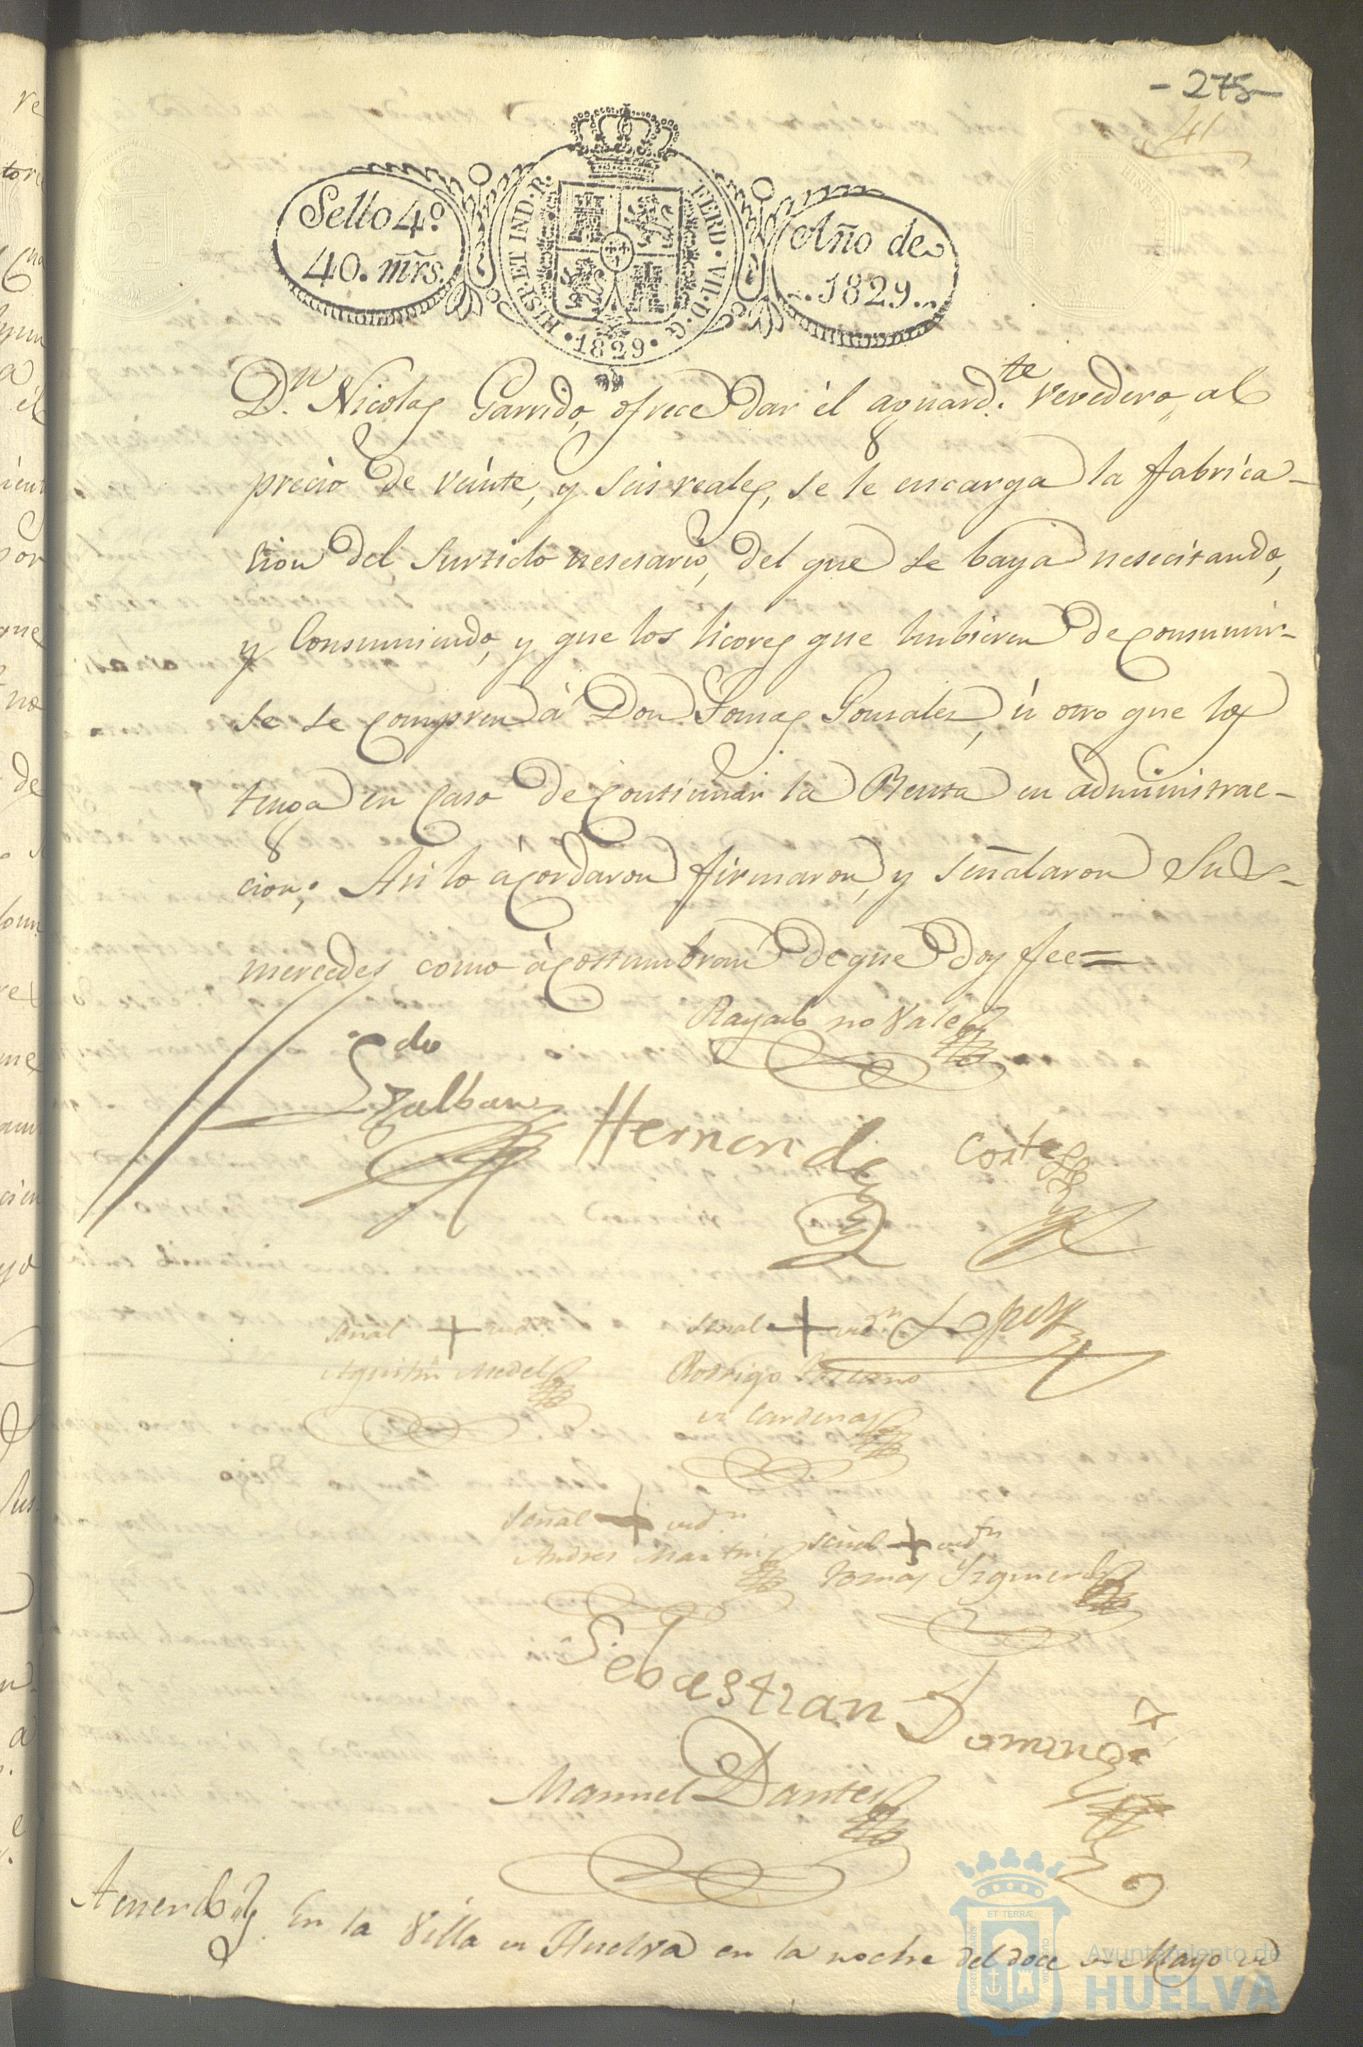 - 275 -
41
Sello 4º
40. mrs.
HISP. ET IND. R.
FERD. VII. D. G.
1829
Año de
1829
Dn. Nicolas Garrido, ofrece dar el aguardte. vevedero, al
precio de veinte, y seis reales, se le encarga la fabrica-
cion del surtido nesesario, del que se baya nesecitando,
y consumiendo, y que los licores que hubieren de consumir-
se se compren á Don Tomas Gonsales, ú otro que los
tenga en caso de continuar la Renta en administrac-
cion; Asi lo acordaron firmaron, y señalaron Sus-
mercedes como acostumbran de que doy fee=
Rayado no vale
Hernandez
Señal + de
Agustin Medel
Señal + de
Lopez
Rodrigo
de Cardenas
Señal + de
Andres Martin
Señal + de
Tomas Yzquierdo
Sebastian Doming
Manuel Dantes
Acuerdo
En la Villa de Huelva en la noche del doce de Mayo de
ET TERRÆ
Ayuntamiento de
HUELVA